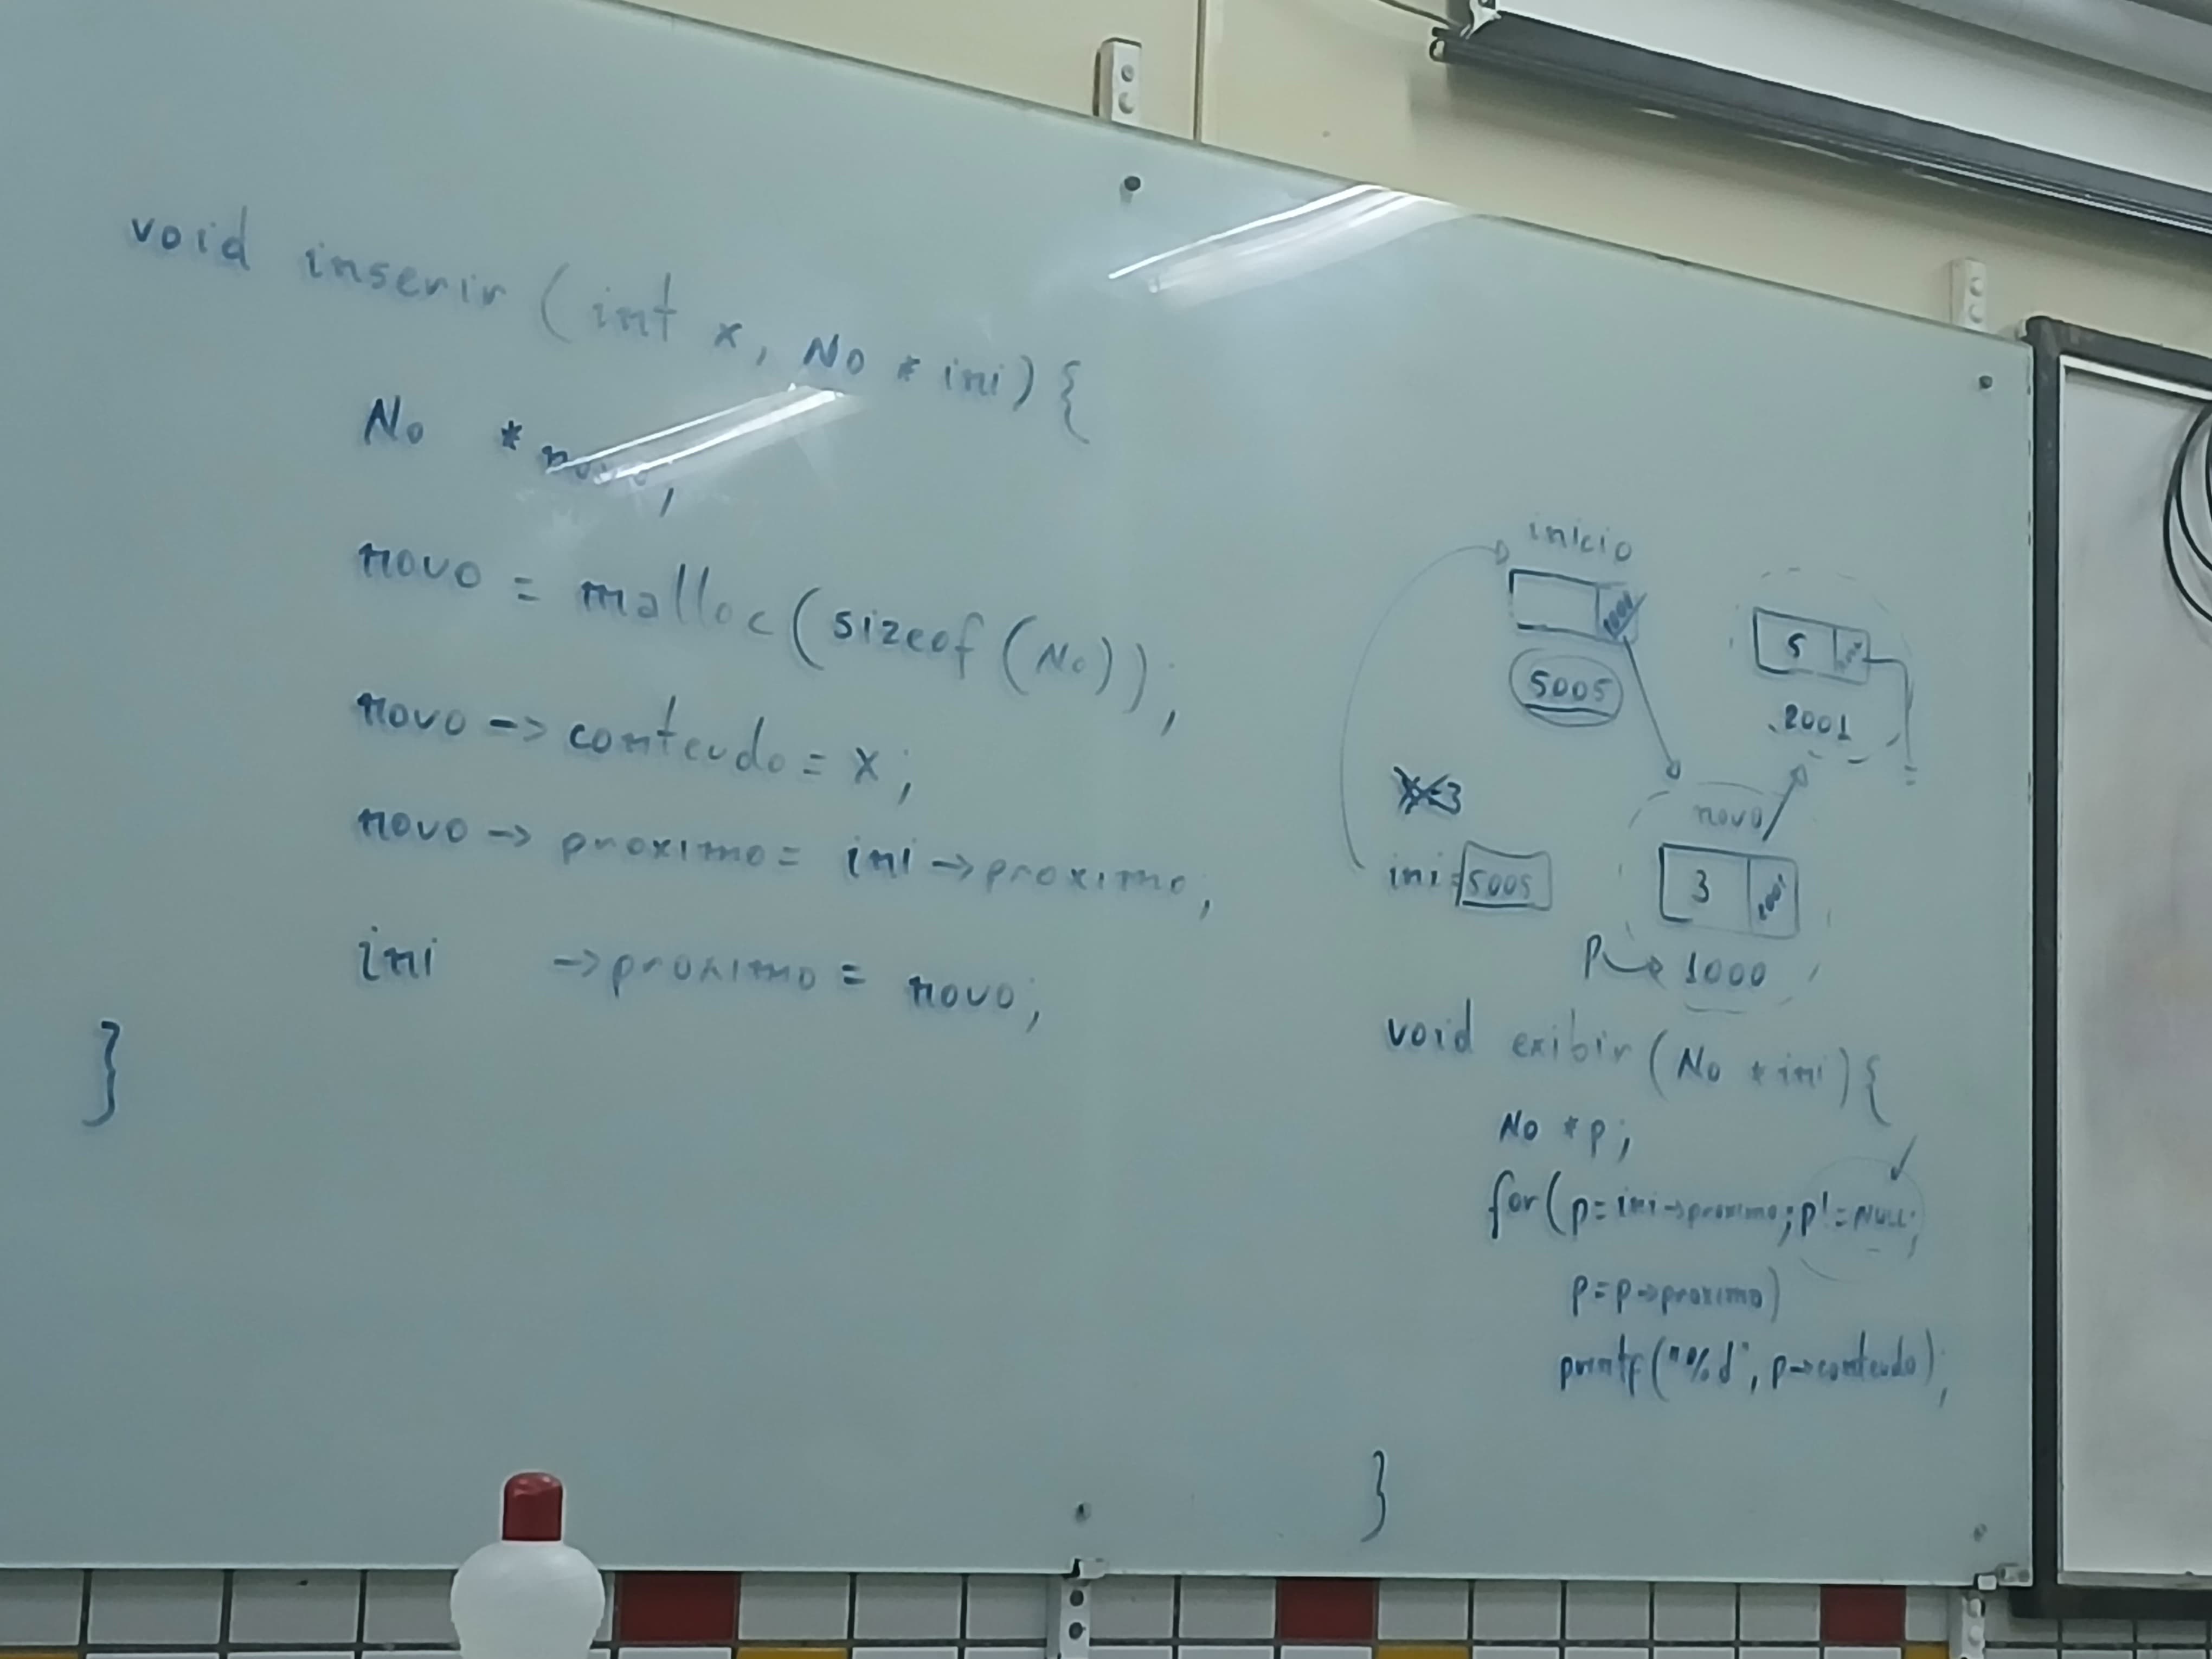 void inserir (int x, No * ini) {
No * novo;
novo = malloc (sizeof (No));
novo -> conteudo = x;
novo -> proximo = ini -> proximo;
ini -> proximo = novo;
}
inicio
1000
5005
5
2001
3
ini 5005
novo
3
P 1000
void exibir (No * ini) {
No * p;
for (p = ini -> proximo; p != NULL;
p = p -> proximo)
printf ("%d", p -> conteudo);
}